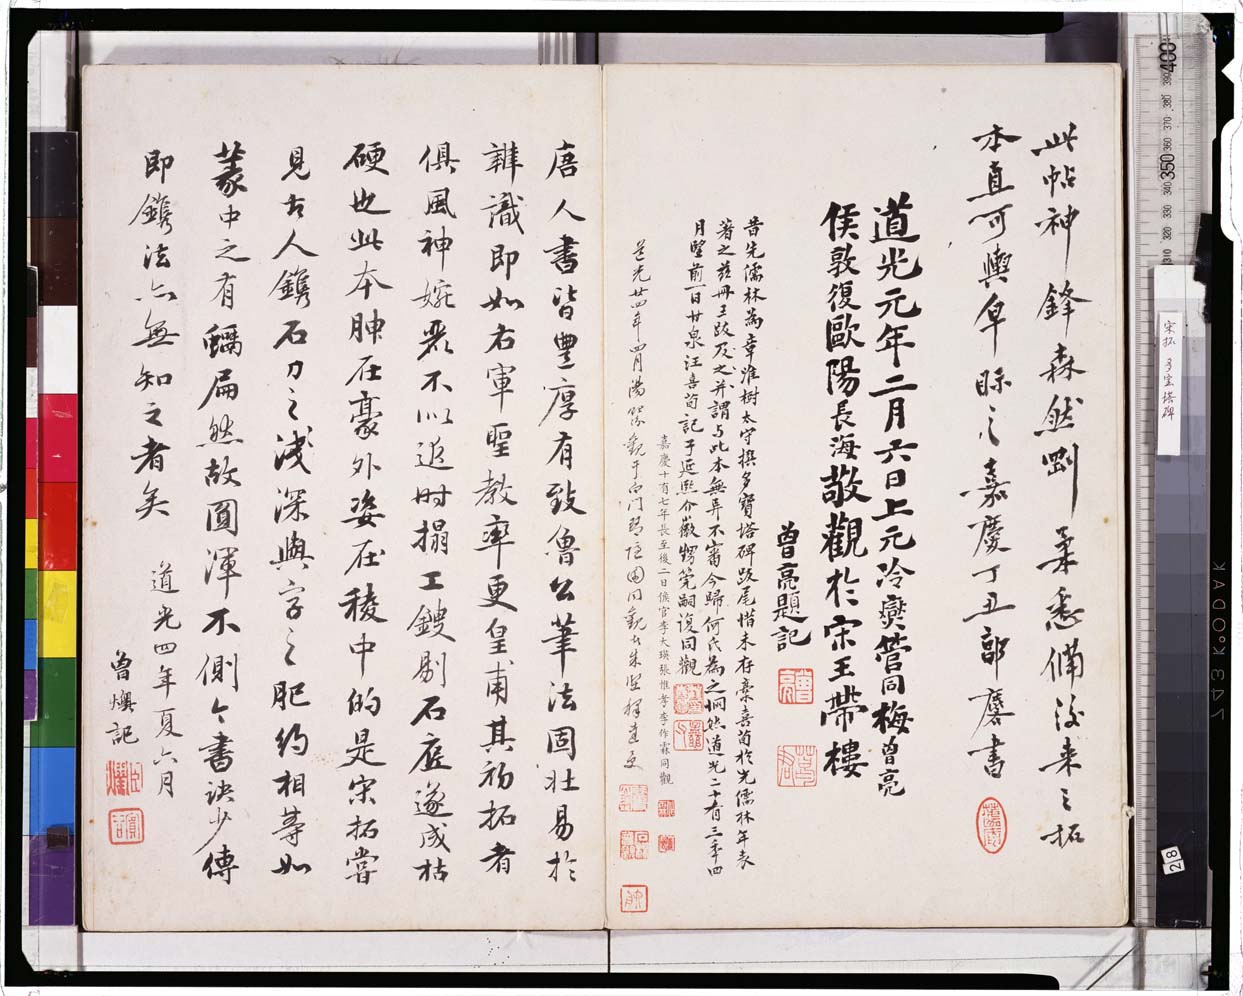 此帖神鋒森然則柔悉備後来之拓
本直可輿皁眎之嘉慶丁丑郭麐書
道光元年二月六日上元冷爕管同梅曾亮
侯敦復歐陽長海敬觀於宋王帶樓
曾亮題記
昔先儒林為章淮樹太守撰多寶塔碑跋尾惜未存橐喜荀於光儒林年表
著之兹冊王跋及之并謂与此本無異不審今歸何氏為之惘然道光二十有三年十四
月望前一日甘泉汪喜荀記于延熙介徽甥筦嗣復同觀
嘉慶十有七年長至後二日候官李大瑛張惟孝李作霖同觀
道光廿四年四月湯貽汾觀于白門琴隱園同觀者朱堅釋真受
唐人書皆豐厚有致魯公筆法固壯易於
辨識即如右軍聖教率更皇甫其初拓者
俱風神婉麗不似近時搨工鏝剔石底遂成枯
硬也此本肿在豪外姿在稜中的是宋拓嘗
見古人鐫石刀之淺深與字之肥約相等如
篆中之有蠣扁然故圓渾不側今書訣少傳
即鐫法亦無知之者矣
道光四年夏六月
曾燠記
宋拓 多宝塔碑
400
390
380
370
360
350
340
330
320
310
28
743 KODAK